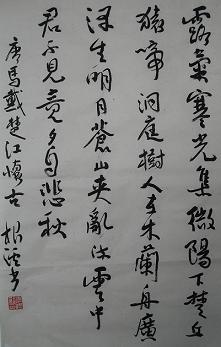 露氣寒光集微陽下楚丘
猿啼洞庭樹人在木蘭舟廣
澤生明月蒼山夾亂流雲中
君不見竟夕自悲秋
唐馬戴楚江懷古 书